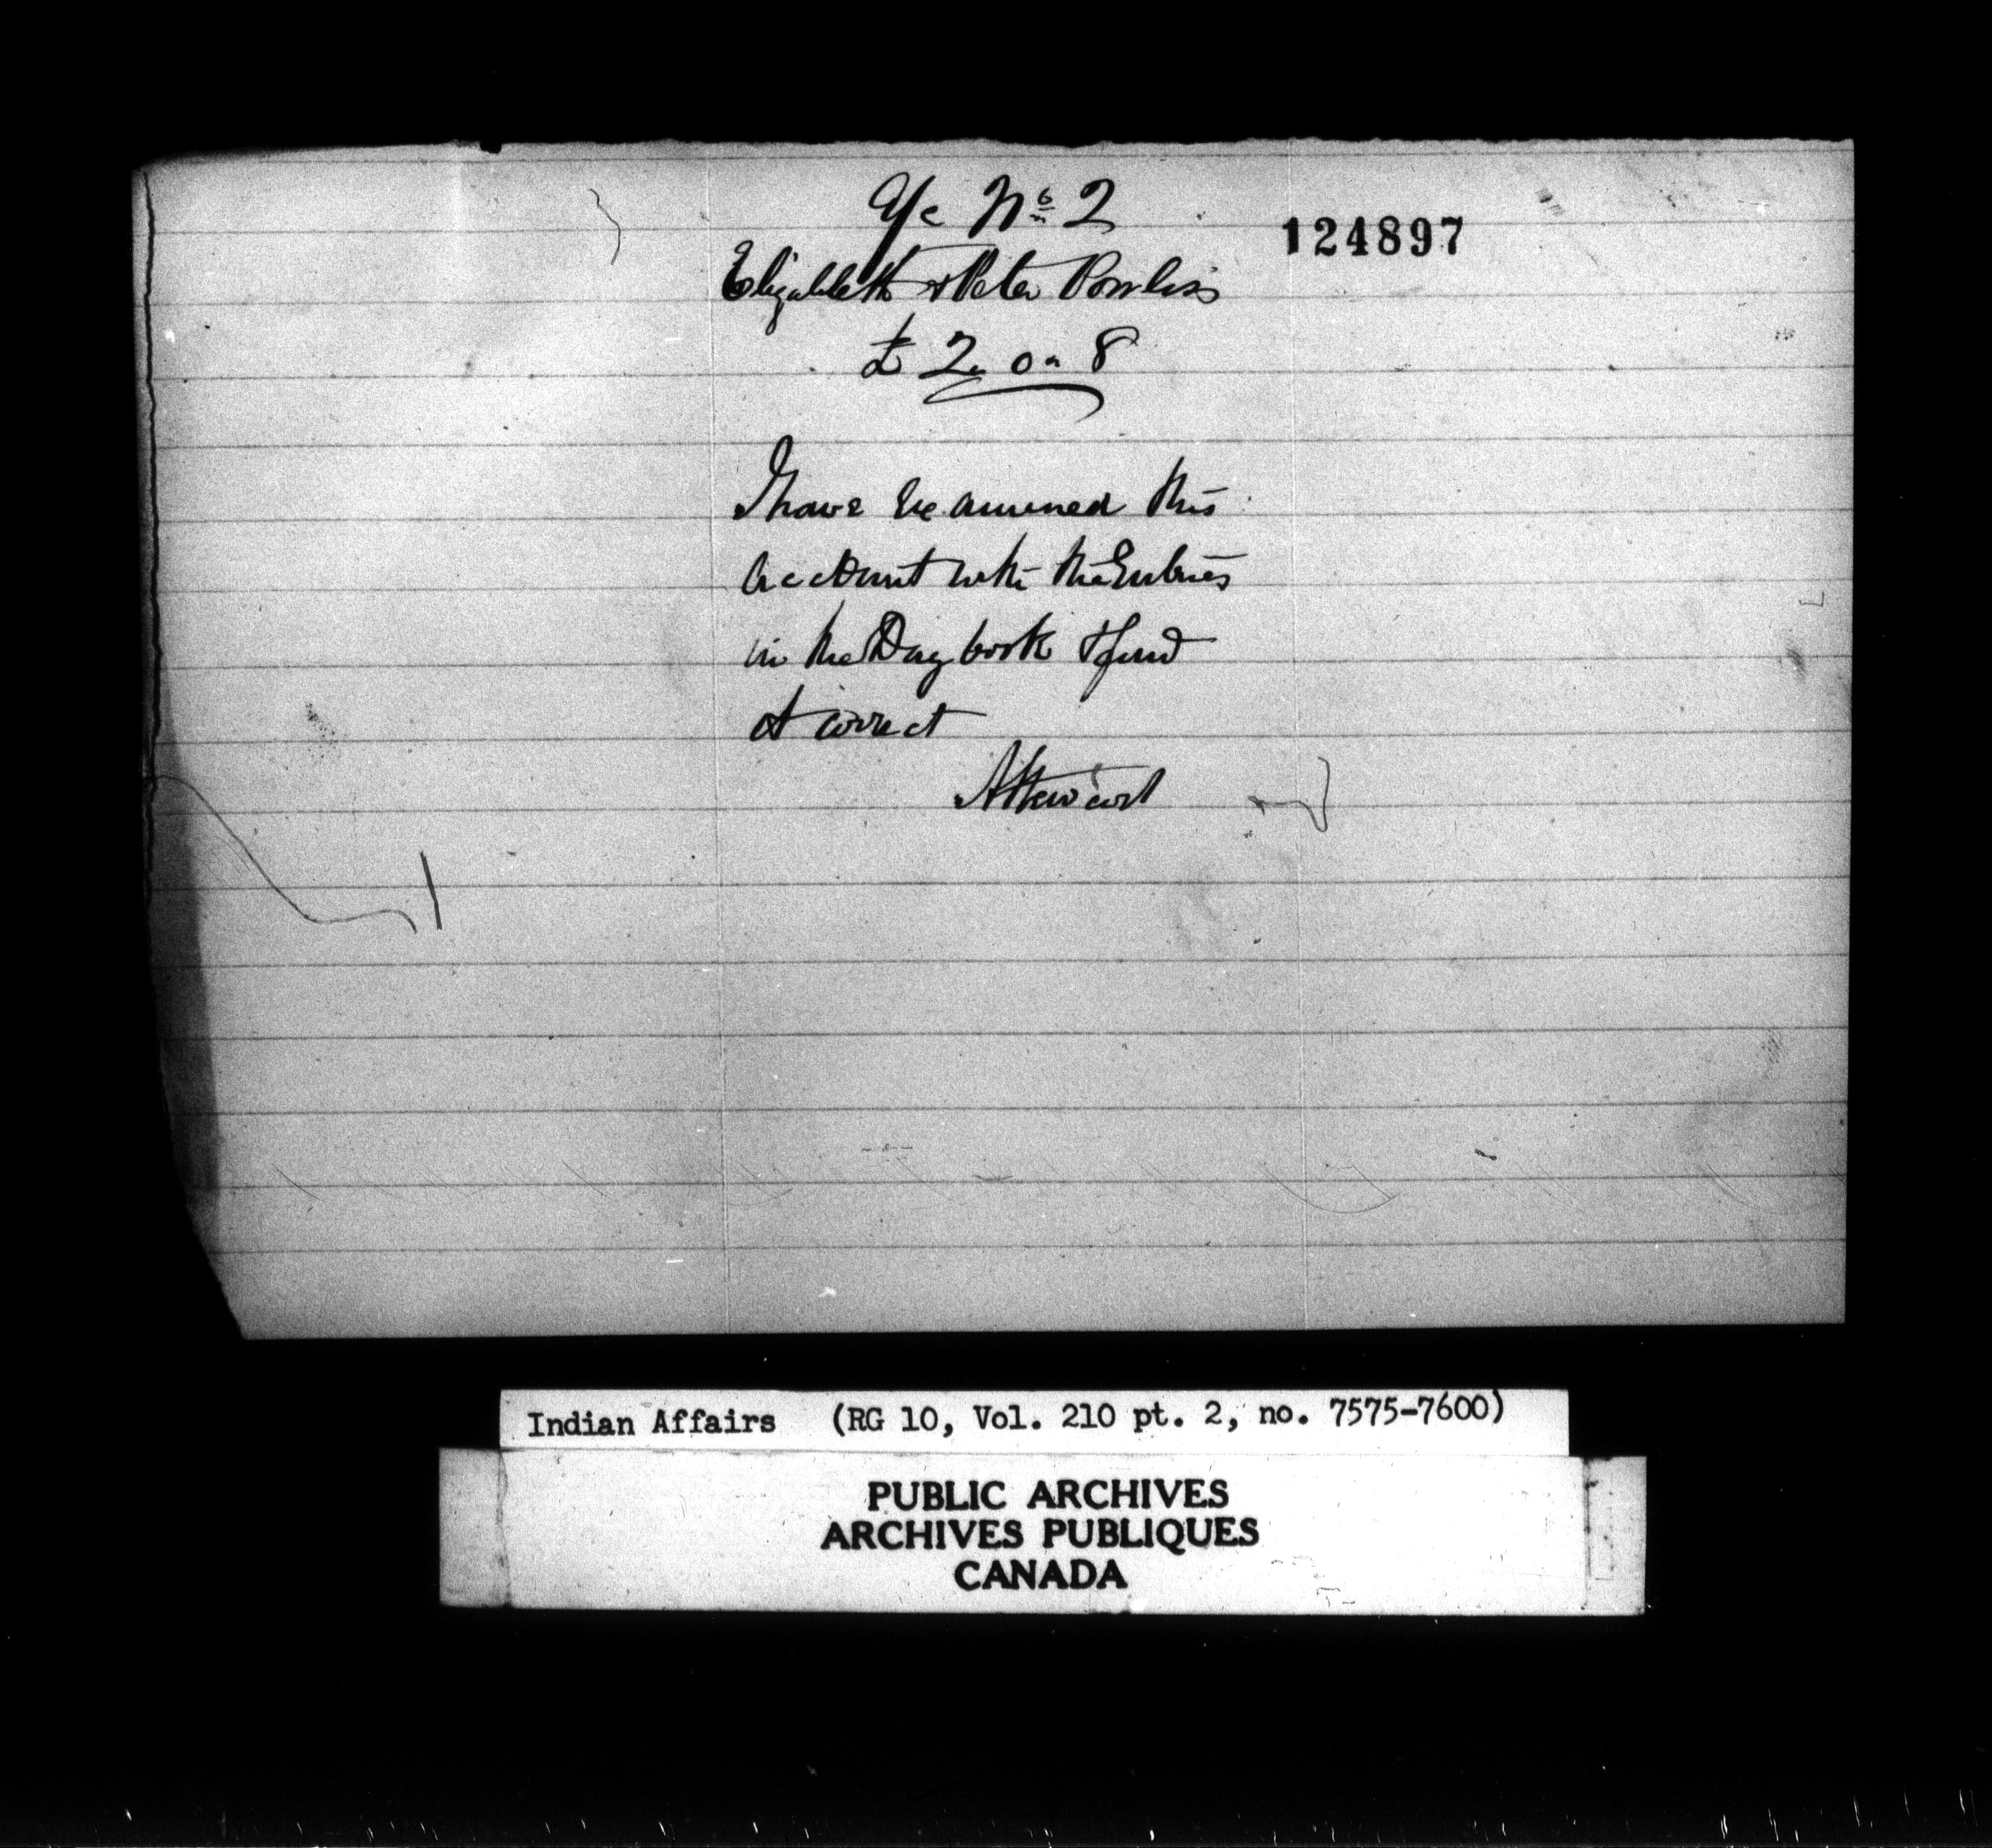 a/c No 2
124897
Elizabeth & Peter Powliss
£ 2 " 0 " 8
I have Examined this
account with the Entries
in the Day book & find
it correct
AStewart
Indian Affairs (RG 10, Vol. 210 pt. 2, no. 7575-7600)
PUBLIC ARCHIVES
ARCHIVES PUBLIQUES
CANADA